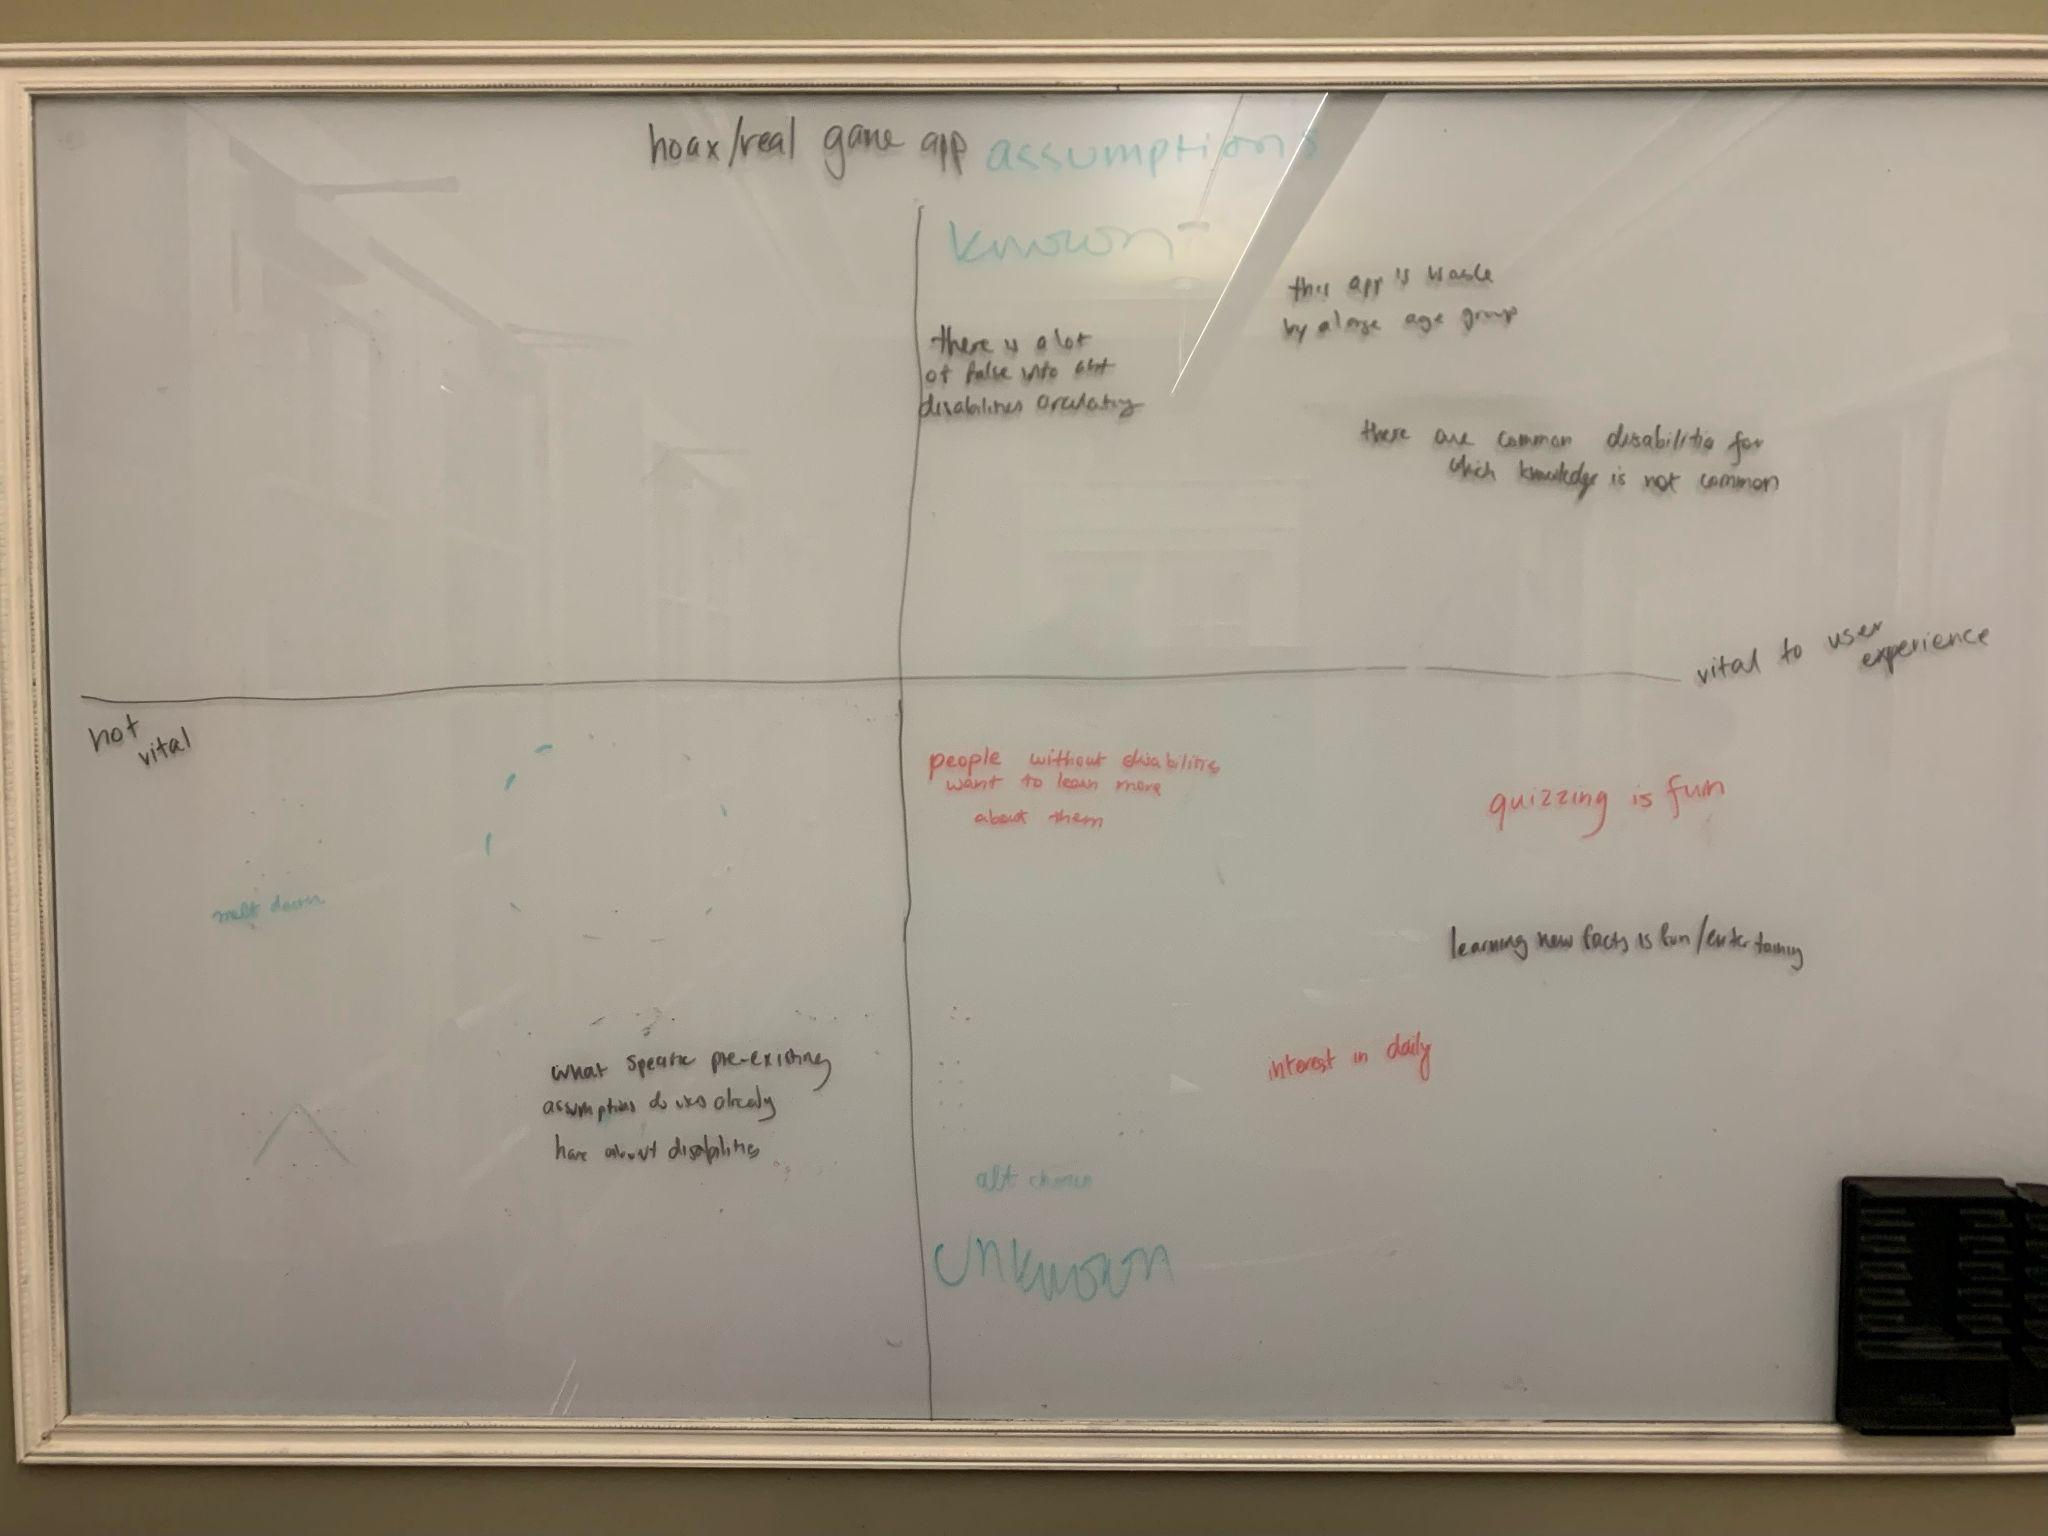 hoax/real game app assumptions
known
this app is usable
by a large age group
there is a lot
of false info abt
disabilities circulating
there are common disabilities for
which knowledge is not common
vital to user
experience
not
vital
people without disabilities
want to learn more
about them
quizzing is fun
melt down
learning new facts is fun/entertaining
what specific pre-existing
assumptions do users already
have about disabilities
interest in daily
unknown